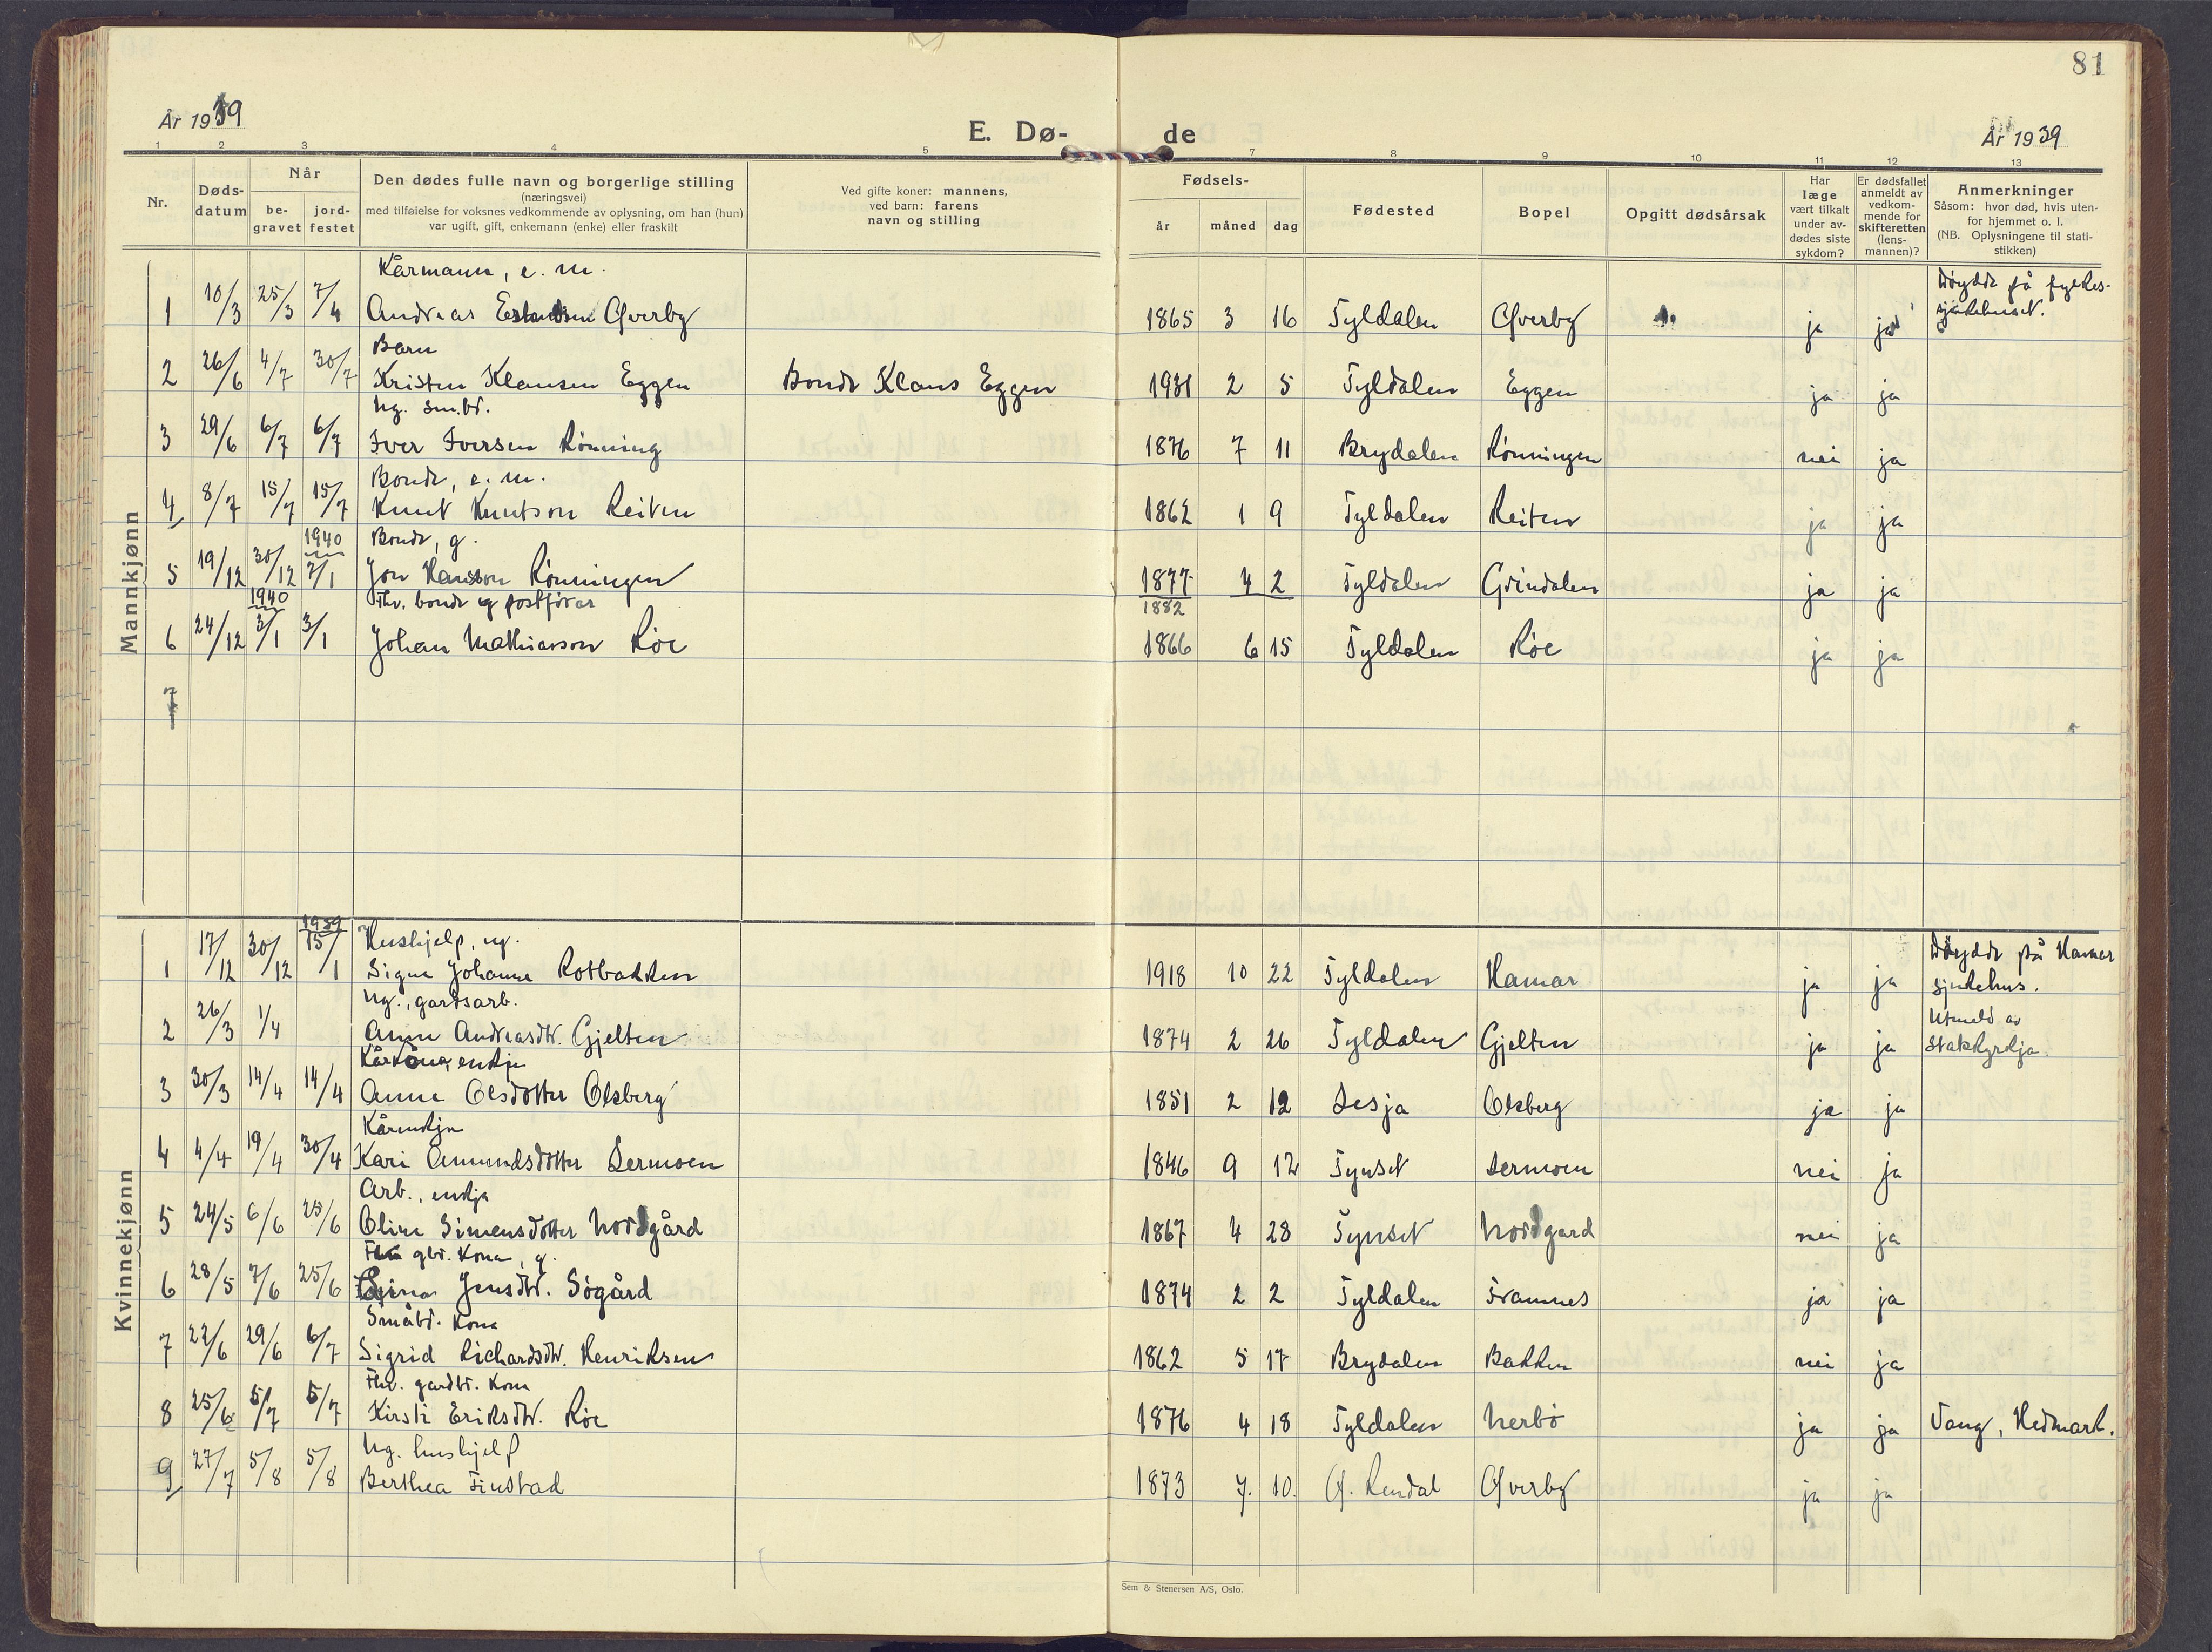 81
År 1939
E. Dø-
de
År 1939
1 2 3 4 5 7 8 9 10 11 12 13
Nr.
Døds-
datum
Når
be-
gravet
jord-
festet
Den dødes fulle navn og borgerlige stilling
(næringsvei)
med tilføielse for voksnes vedkommende av oplysning, om han (hun)
var ugift, gift, enkemann (enke) eller fraskilt
Ved gifte koner: mannens,
ved barn: farens
navn og stilling
Fødsels-
år
måned
dag
Fødested
Bopel
Opgitt dødsårsak
Har
læge
vært tilkalt
under av-
dødes siste
sykdom?
Er dødsfallet
anmeldt av
vedkom-
mende for
skifteretten
(lens-
mannen)?
Anmerkninger
Såsom: hvor død, hvis uten-
for hjemmet o. l.
(NB. Oplysningene til stati-
stikken)
Mannkjønn
Kårmann, e. m.
Døydde på fylkes-
1 10/3 25/3 7/4 Andreas Estensen Øverby 1865 3 16 Tyldalen Øverby ja ja sjukehuset.
Barn
2 26/6 4/7 30/7 Kristen Klausen Eggen Bonde Klaus Eggen 1931 2 5 Tyldalen Eggen ja ja
Ug. sm.br.
3 29/6 6/7 6/7 Iver Iversen Rønning 1876 7 11 Brydalen Rønningen nei ja
Bonde, e. m.
4 8/7 15/7 15/7 Knut Knutson Reiten 1862 1 9 Tyldalen Reiten ja ja
1940 Bonde, g.
5 19/12 30/12 7/1 Jon Hansson Rønningen 1877 4 2 Tyldalen Grindalen ja ja
1940 Fhv. bonde og postførar 1882
6 24/12 3/1 3/1 Johan Mathiasson Røe 1866 6 15 Tyldalen Røe ja ja
7
Kvinnekjønn
1939 Hushjelp, ug. Døydde på Hamar
1 17/12 30/12 15/1 Signe Johanne Rotbakken 1918 10 22 Tyldalen Hamar ja ja sjukehus.
Ug., gardsarb. Utmeld av
2 26/3 1/4 Anne Andreasdtr. Gjelten 1874 2 26 Tyldalen Gjelten ja ja statskyrkja.
Kårkona, enkje
3 30/3 14/4 14/4 Anne Olsdotter Olsberg 1851 2 12 Lesja Olsberg ja ja
Kårenkje
4 4/4 19/4 30/4 Kari Amundsdotter Lermoen 1846 9 12 Tynset Lermoen nei ja
Arb., enkja
5 24/5 6/6 25/6 Oline Simensdotter Nordgård 1867 4 28 Tynset Nordgard nei ja
gbr. kona, g.
6 28/5 7/6 25/6 Jensdtr. Søgård 1874 2 2 Tyldalen Framnes ja ja
Småbr. kona
7 22/6 29/6 6/7 Sigrid Richardsdtr. Henriksen 1862 5 17 Brydalen Bakken nei ja
Fhv. gardbr. kona
8 25/6 5/7 5/7 Kirsti Eriksdtr. Røe 1876 4 18 Tyldalen Nerbø ja ja Vang, Hedmark.
Ug. hushjelp
9 27/7 5/8 5/8 Berthea Finstad 1873 7. 10. Ø. Rendal Øverby ja ja
Sem & Stenersen A/S, Oslo.